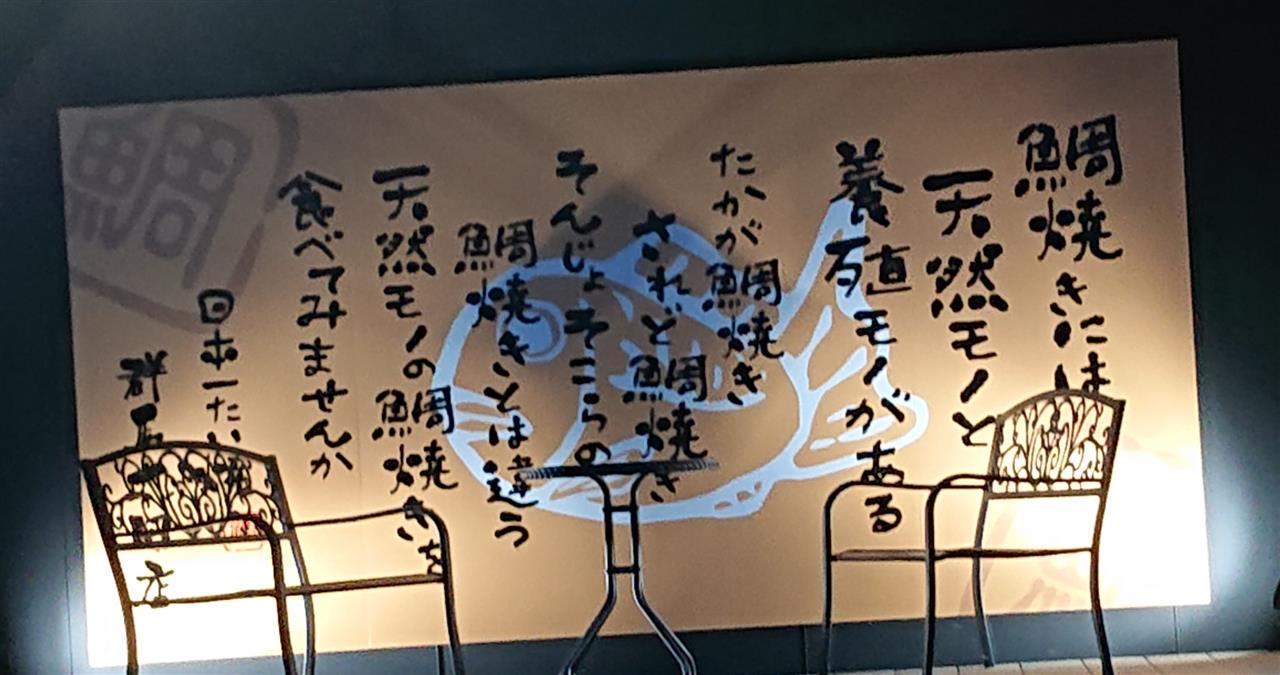 鯛焼きには
天然モノと
養殖モノがある
たかが鯛焼き
されど鯛焼き
そんじょそこらの
鯛焼きとは違う
天然モノの鯛焼きを
食べてみませんか
日本一たい
群
店
鯛